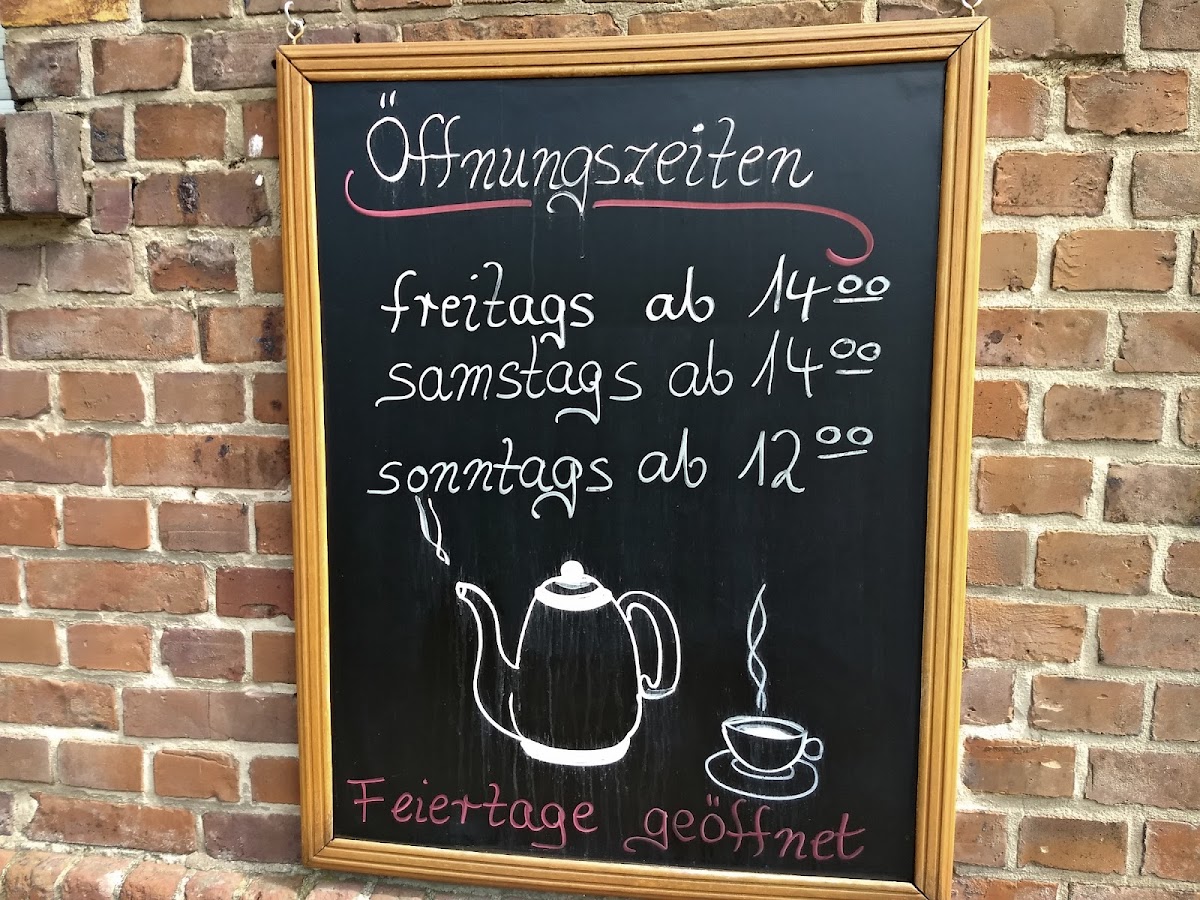 Öffnungszeiten
freitags ab 14 00
samstags ab 14 00
sonntags ab 12 00
Feiertage geöffnet